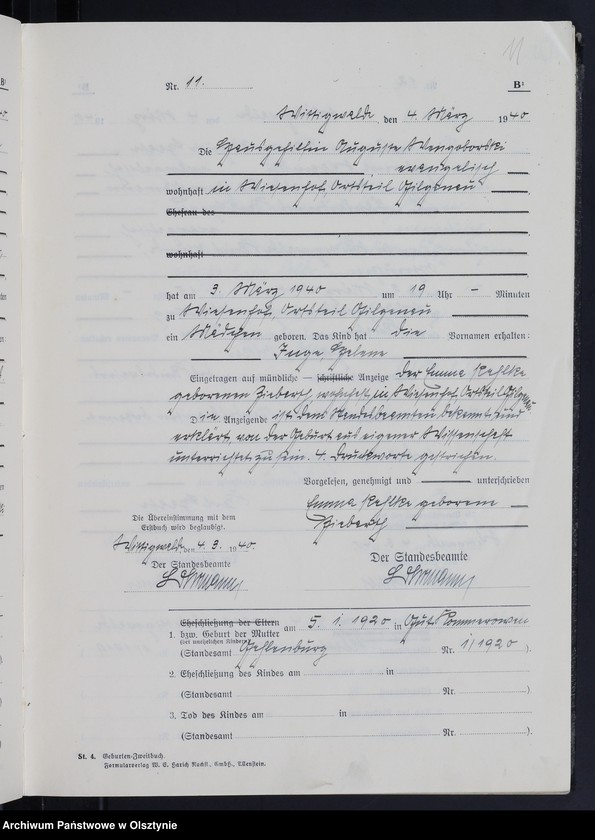 11
Nr. 11.
B¹
Wittigwalde, den 4. März 1940
Die Hausgehilfin Auguste Wengoborski
evangelisch
wohnhaft in Wiesenhof, Ortsteil Gilgenau
Ehefrau des
wohnhaft
hat am 3. März 1940 um 19 Uhr – Minuten
zu Wiesenhof, Ortsteil Gilgenau
ein Mädchen geboren. Das Kind hat die Vornamen erhalten:
Inge, Helene
Eingetragen auf mündliche – schriftliche Anzeige der Emma
geborenen Zieberth, wohnhaft in Wiesenhof, Ortsteil Gilgenau.
Die Anzeigende ist dem Standesbeamten bekannt und
erklärt, von der Geburt aus eigener Wissenschaft
unterrichtet zu sein. 4 Druckworte gestrichen.
Vorgelesen, genehmigt und unterschrieben
Emma geborene
Zieberth
Die Übereinstimmung mit dem
Erstbuch wird beglaubigt.
Wittigwalde den 4. 3. 1940.
Der Standesbeamte
Der Standesbeamte
Eheschließung der Eltern
1. bzw. Geburt der Mutter am 5. 1. 1920 in Gut Kommerowen
(bei unehelichen Kindern)
(Standesamt Gehlenburg Nr. 1/1920).
2. Eheschließung des Kindes am in
(Standesamt Nr. ).
3. Tod des Kindes am in
(Standesamt Nr. ).
St. 4. Geburten-Zweitbuch.
Formularverlag W. E. Harich Nachf., GmbH., Allenstein.
Archiwum Państwowe w Olsztynie